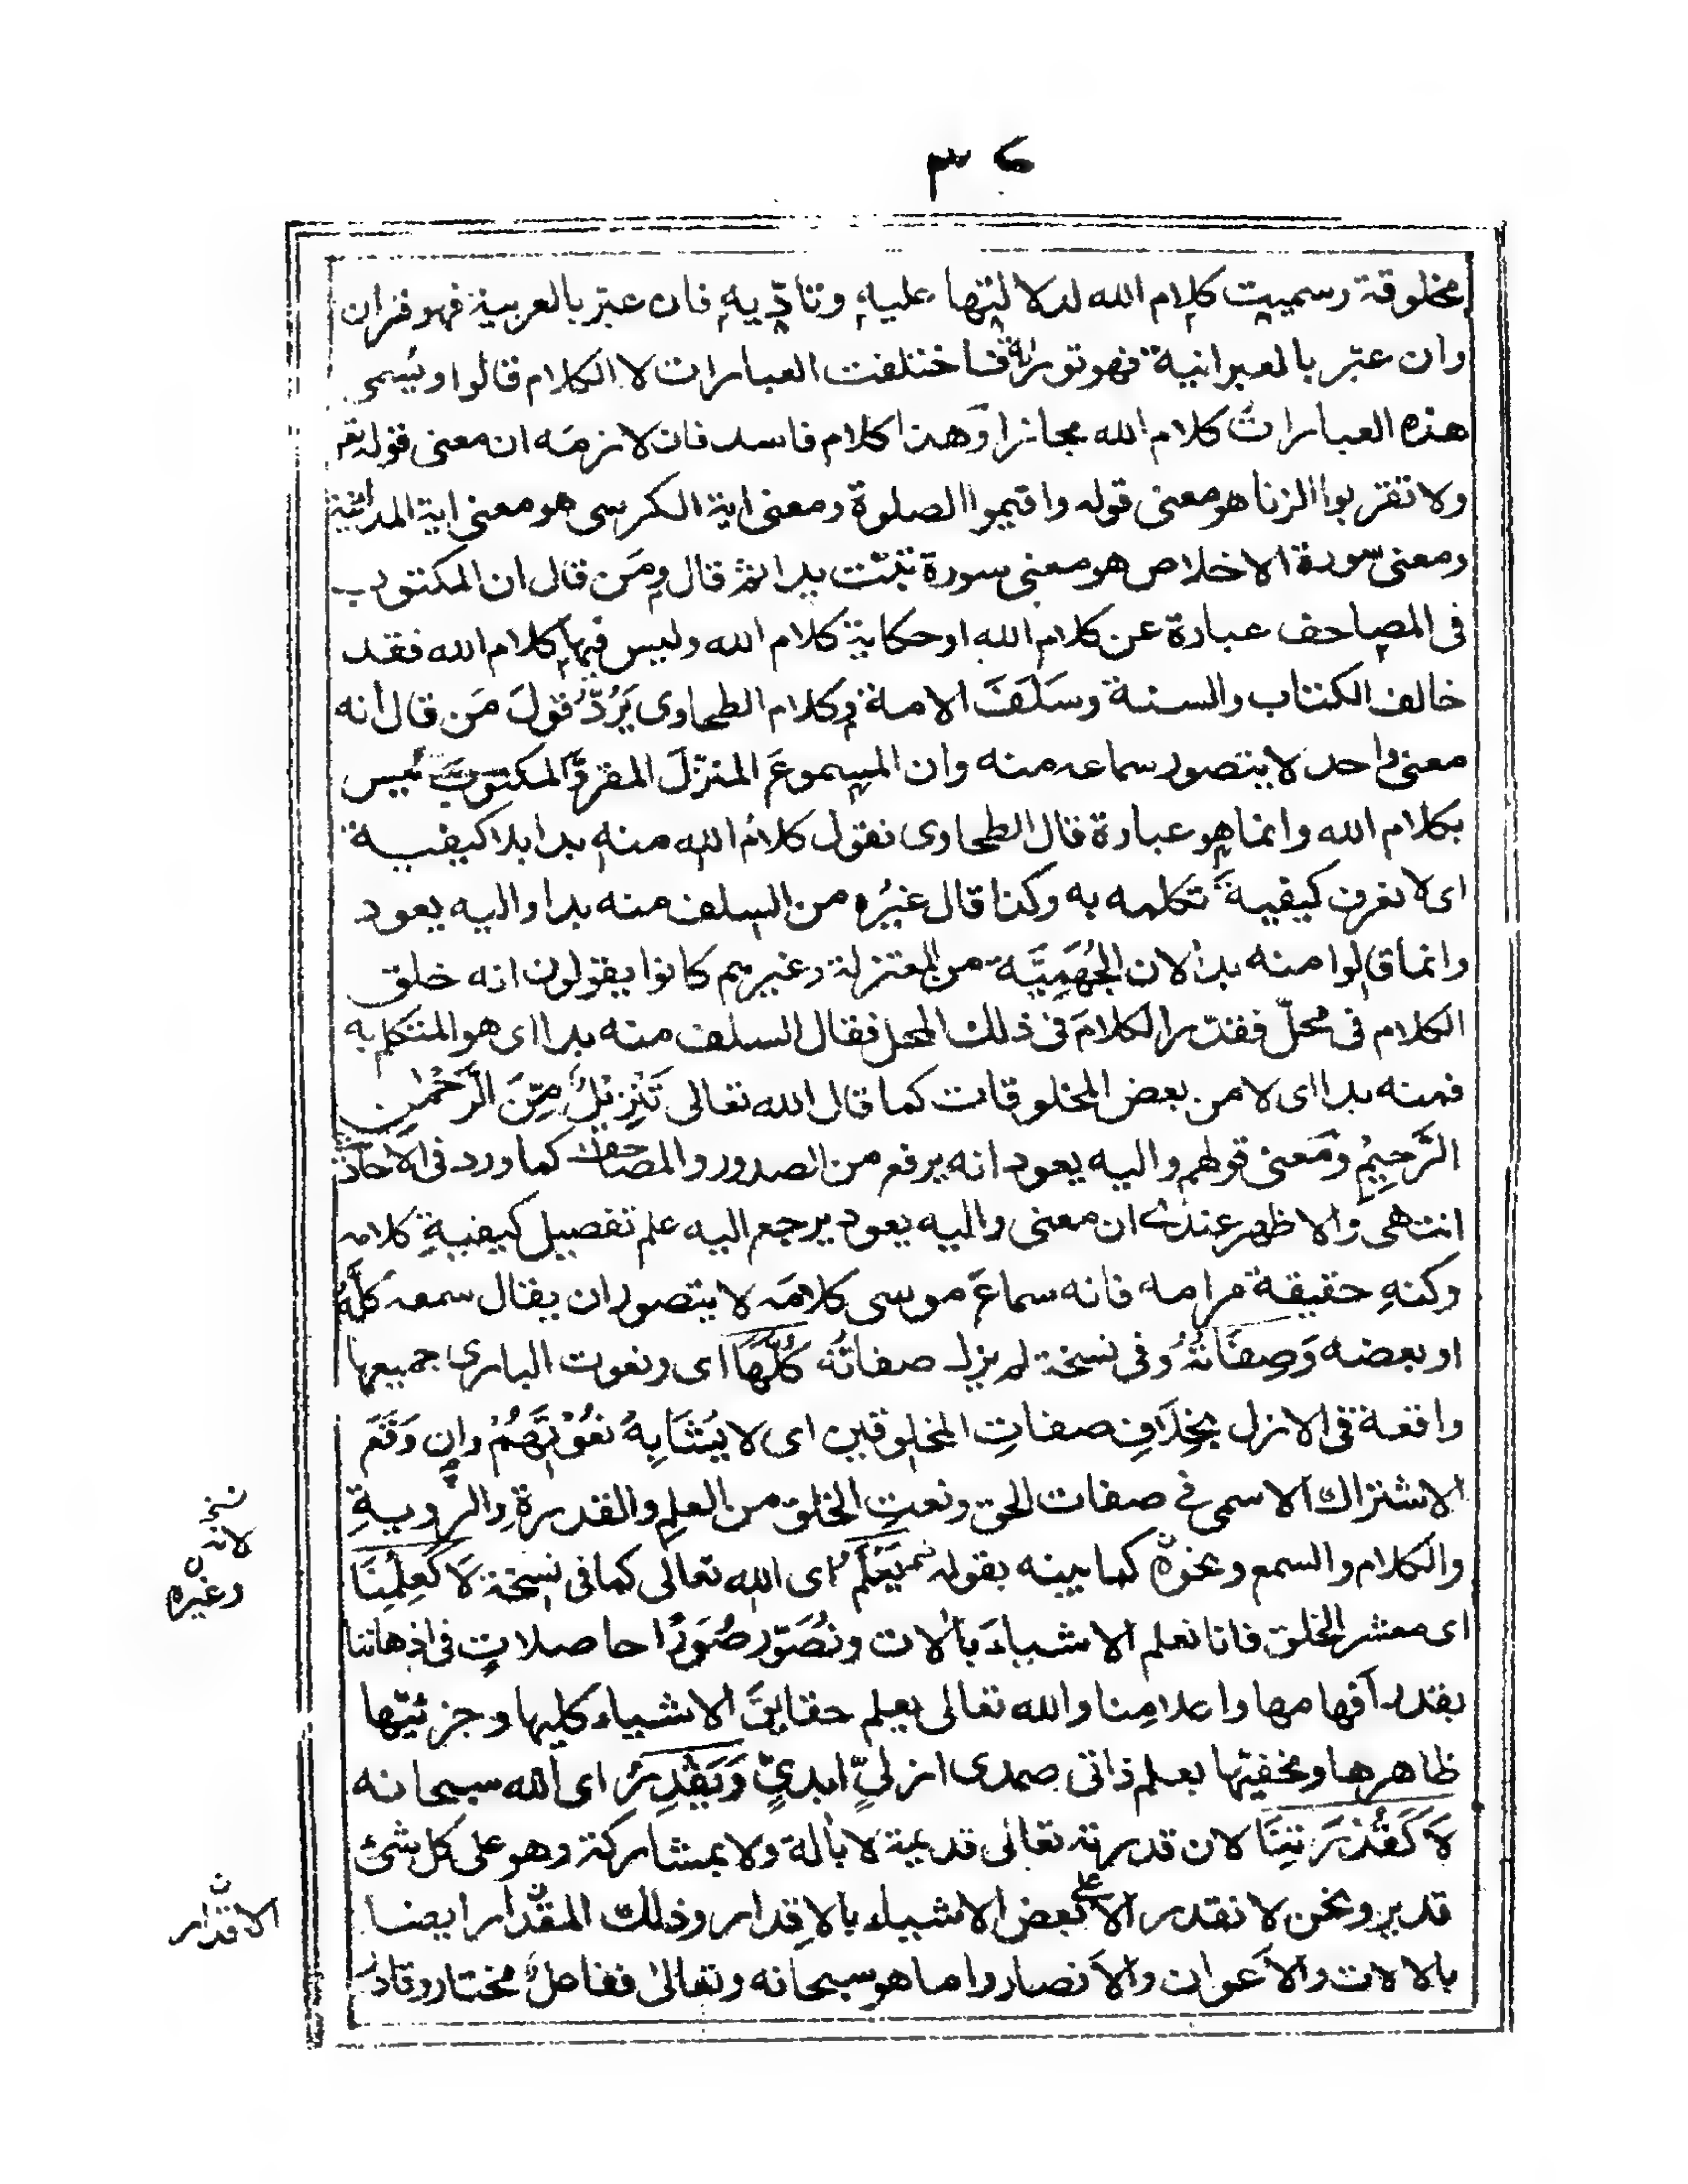 ٣٤
مخلوقة وسميت كلام الله لدلالتها عليه وتادّيه فان عبّر بالعربية فهو قران
وان عبّر بالعبرانية فهو توراة فاختلفت العبارات لا الكلام قالوا ويُسمى
هذه العبارات كلام الله مجازا وهذا كلام فاسد فان لازمه ان معنى قوله تع
ولا تقربوا الزنا هو معنى قوله واقيموا الصلوة ومعنى اية الكرسى هو معنى اية المداينة
ومعنى سورة الاخلاص هو معنى سورة تبّت يدا ثم قال ومَن قال ان المكتوب
فى المصاحف عبارة عن كلام الله او حكاية كلام الله وليس فيها كلام الله فقد
خالف الكتاب والسنة وسَلَفَ الامة وكلام الطحاوى يَرُدّ قولَ مَن قال انه
معنى واحد لا يتصور سماعه منه وان المسموعَ المنزّلَ المقروَّ المكتوبَ ليس
بكلام الله وانما هو عبارة قال الطحاوى نقول كلامُ الله منه بدا بلا كيفية
اى لا نعرف كيفيةَ تكلمه به وكذا قال غيرُه من السلف منه بدا واليه يعود
وانما قالوا منه بدا لان الجُهَمِيَّة من المعتزلة وغيرهم كانوا يقولون انه خلق
الكلام فى محلّ فقدّر الكلامَ فى ذلك المحل فقال السلف منه بدا اى هو المتكلم به
فمنه بدا اى لا من بعض المخلوقات كما قال الله تعالى تَنْزِيْلٌ مِّنَ الرَّحْمٰنِ
الرَّحِيْمِ ومَعنى قولهم واليه يعود انه يرفع من الصدور والمصاحف كما ورد فى الاحاد
انتهى والاظهر عندى ان معنى واليه يعود يرجع اليه علم تفصيل كيفيةِ كلامه
وكنهِ حقيقة مرامه فانه سماعَ موسى كلامَه لا يتصور ان يقال سمعه كلَّهُ
او بعضه وَصِفَاتُهُ وفى نسخة لم يزل صفاتُه كُلُّهَا اى ونعوت البارى جميعها
واقعة فى الازل بِخِلَافِ صفاتِ المخلوقين اى لا يُشَابِهُ نُعُوْتَهُمْ وان وَقَعَ
الاشتراك الاسمى فى صفات الحق ونعتِ الخلق من العلمِ والقدرةِ والرويةِ
والكلام والسمع ونحوه كما بينه بقوله يَعْلَمُ اى الله تعالى كما فى نسخة لَا كَعِلْمِنَا
اى معشر الخلق فانا نعلم الاشياءَ بالات ونُصَوّر صُوَرًا حاصلاتٍ فى اذهاننا
بقدر افهامها واعلامِنا والله تعالى يعلم حقايقَ الاشياء كليها وجزئيّها
ظاهرها ومخفيّها بعلم ذاتى صمدى ازلىٍّ ابدىٍّ وَيَقْدِرُ اى الله سبحانه
لَا كَقُدْرَتِنَا لان قدرته تعالى قديمة لا بالة ولا بمشاركة وهو على كل شئ
قدير ونحن لا نقدر الا على بعض الاشياء بالاِقدار وذلك المقدار ايضا
بالالات والاَعوان والاَنصار واما هو سبحانه وتعالىٰ ففاعلٌ مختار وقادر
نسخ
لانه
ن
وغيره
ن
الاقدار